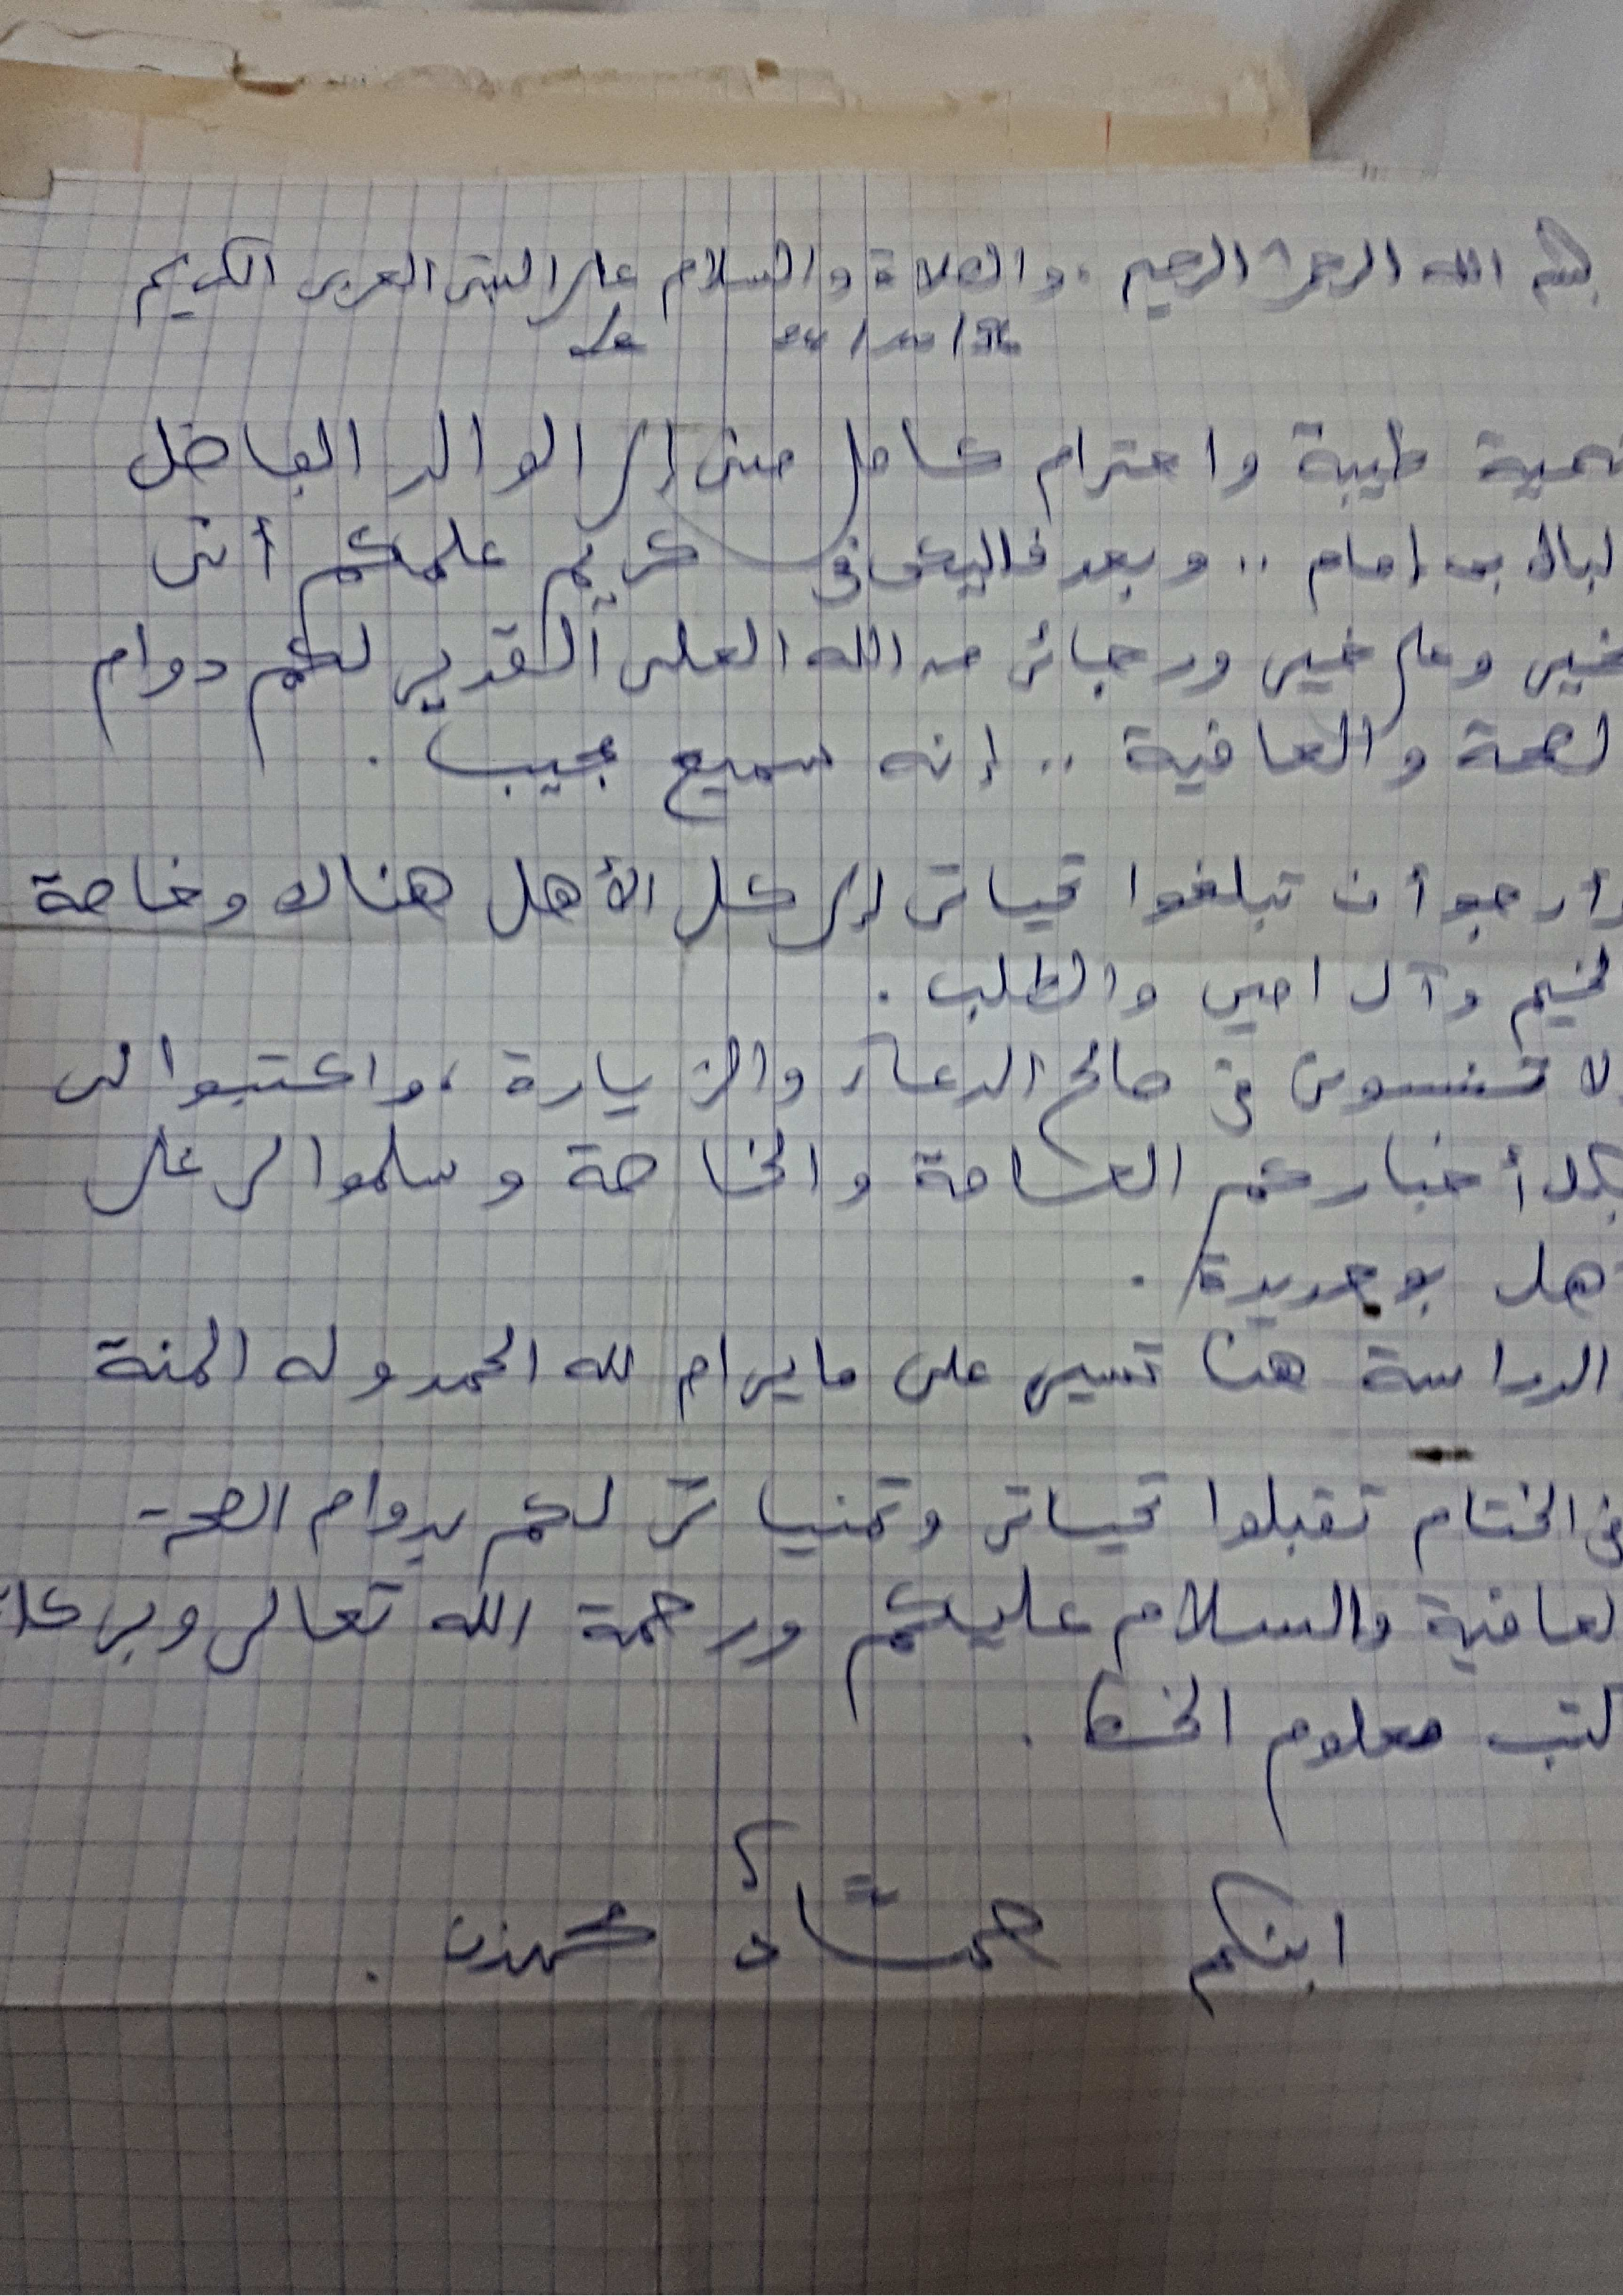 بسم الله الرحمن الرحيم ، والصلاة والسلام على النبي العربي الكريم
تحية طيبة واحترام كامل مني إلى الوالد الفاضل
امام .. وبعد فاليكن في كريم علمكم أني
بخير وعلى خير ورجائي من الله العلي القدير لكم دوام
لصحة والعافية .. إنه سميع مجيب .
وأرجو أن تبلغوا تحياتي إلى كل الأهل هناك وخاصة
وآل امين والطلب .
لا تنسوني في صالح الدعاء والزيارة ، واكتبوا لي
بكل أخباركم العامة والخاصة وسلموا لي على
هل بوحديدة .
الدراسة هنا تسير على ما يرام لله الحمد وله المنة
في الختام تقبلوا تحياتي وتمنياتي لكم بدوام الصحة
لعافية والسلام عليكم ورحمة الله تعالى وبركا
كتب معلوم الخط .
ابنكم